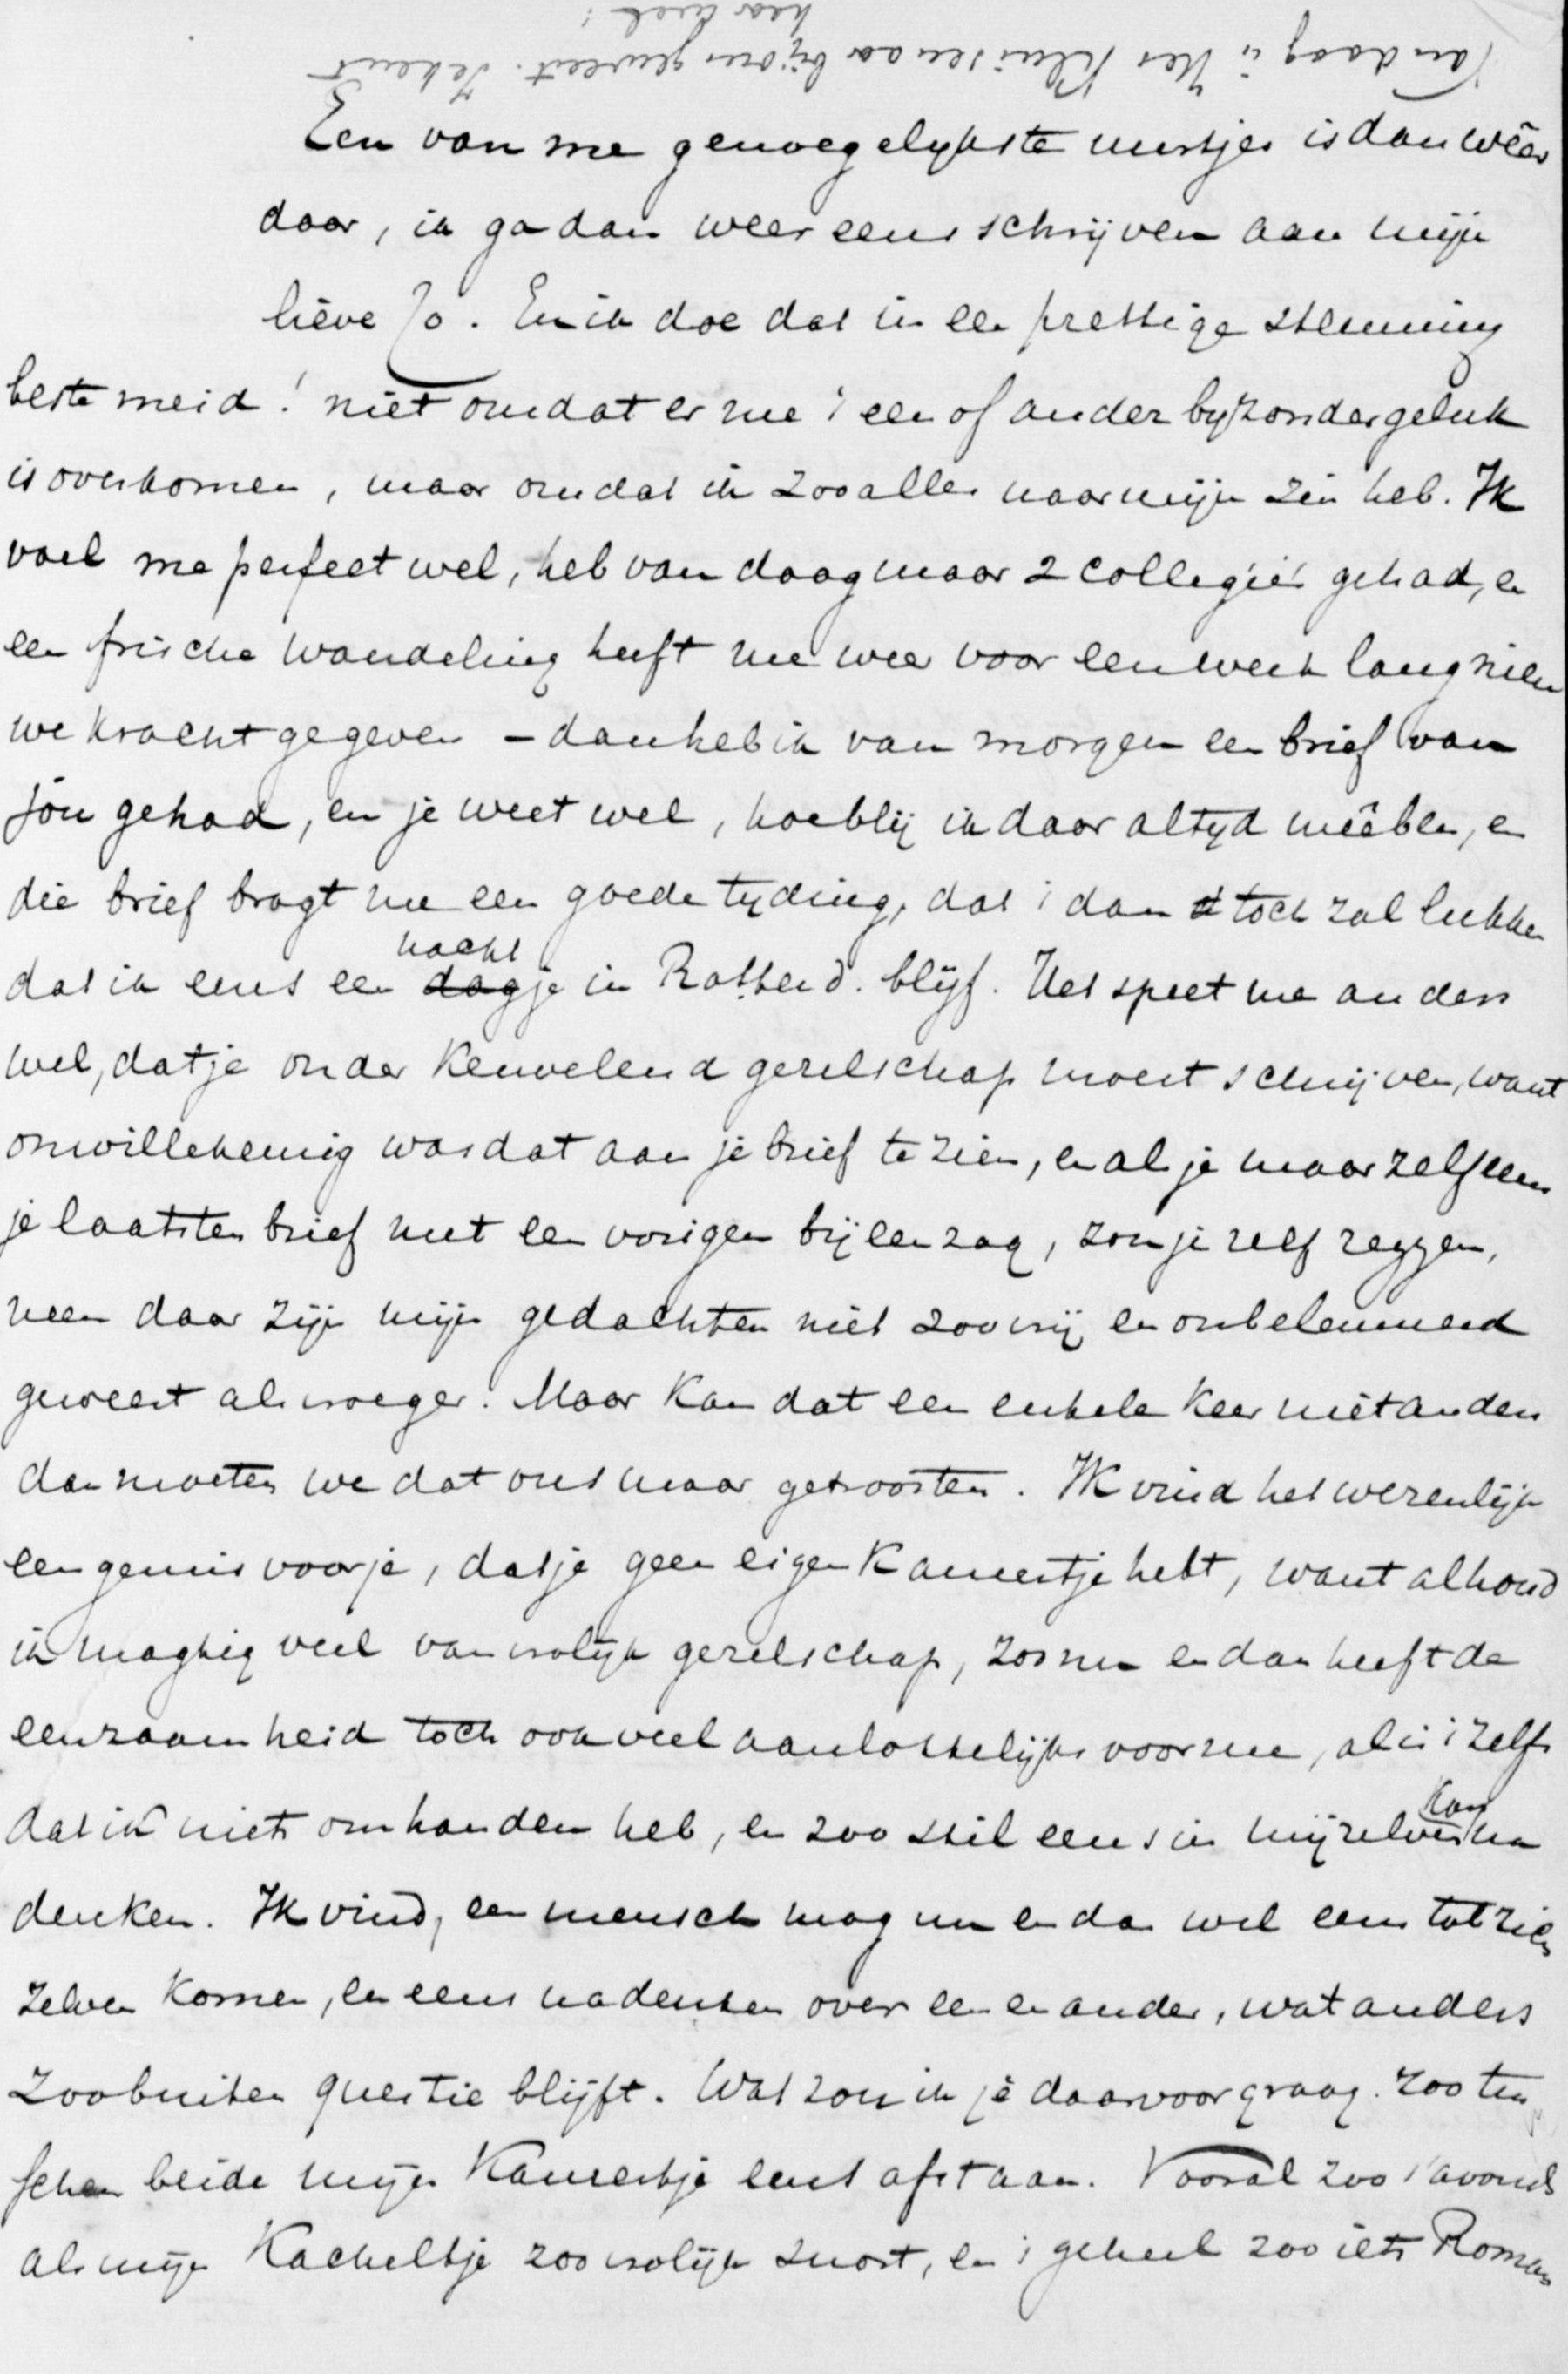 Vandaag is Kluisenaar bij ons geweest. Je kent
haar wel!
Een van me genoegelykste uurtjes is dan weêr
daar, ik ga dan weer eens schrijven aan mijn
lieve Jo. En ik doe dat in een prettige stemming
beste meid! niet omdat er me 't een of ander byzonder geluk
is overkomen, maar omdat ik zoo alles naar mijn zin heb. Ik
voel me perfect wel, heb van daag maar 2 collegie's gehad, en
een frissche wandeling heeft me weer voor een week lang nieu
we kracht gegeven – dan heb ik van morgen een brief van
jou gehad, en je weet wel, hoe blij ik daar altyd meê ben, en
die brief bragt me een goede tyding, dat 't dan toch zal lukken
dat ik eens een nachtje in Rotterd. blijf. Het speet me anders
wel, dat je onder keuvelend gezelschap moest schrijven, want
onwillekeurig was dat aan je brief te zien, en als je maar zelf eens
je laatsten brief met een vorigen bijeen zag, zou je zelf zeggen,
neen daar zijn mijn gedachten niet zoo vrij en onbelemmerd
geweest als vroeger. Maar kan dat een enkele keer niet anders
dan moeten we dat ons maar getroosten. Ik vind het wezenlijk
een gemis voor je, dat je geen eigen Kamertje hebt, want al houd
ik magtig veel van vrolijk gezelschap, zoo nu en dan heeft de
eenzaamheid toch ook veel aanlokkelijks voor me, al is 't zelfs
dat ik niets om handen heb, en zoo stil eens in mijzelven kan na
denken. Ik vind, een mensch mag nu en dan wel eens tot zich
zelven komen, en eens nadenken over een en ander, wat anders
zoo buiten questie blijft. Wat zou ik je daarvoor graag zoo tus
schen beide mijn Kamertje eens afstaan. Vooral zoo 's avonds
als mijn Kacheltje zoo vrolijk snort, en 't geheel zoo iets Roman